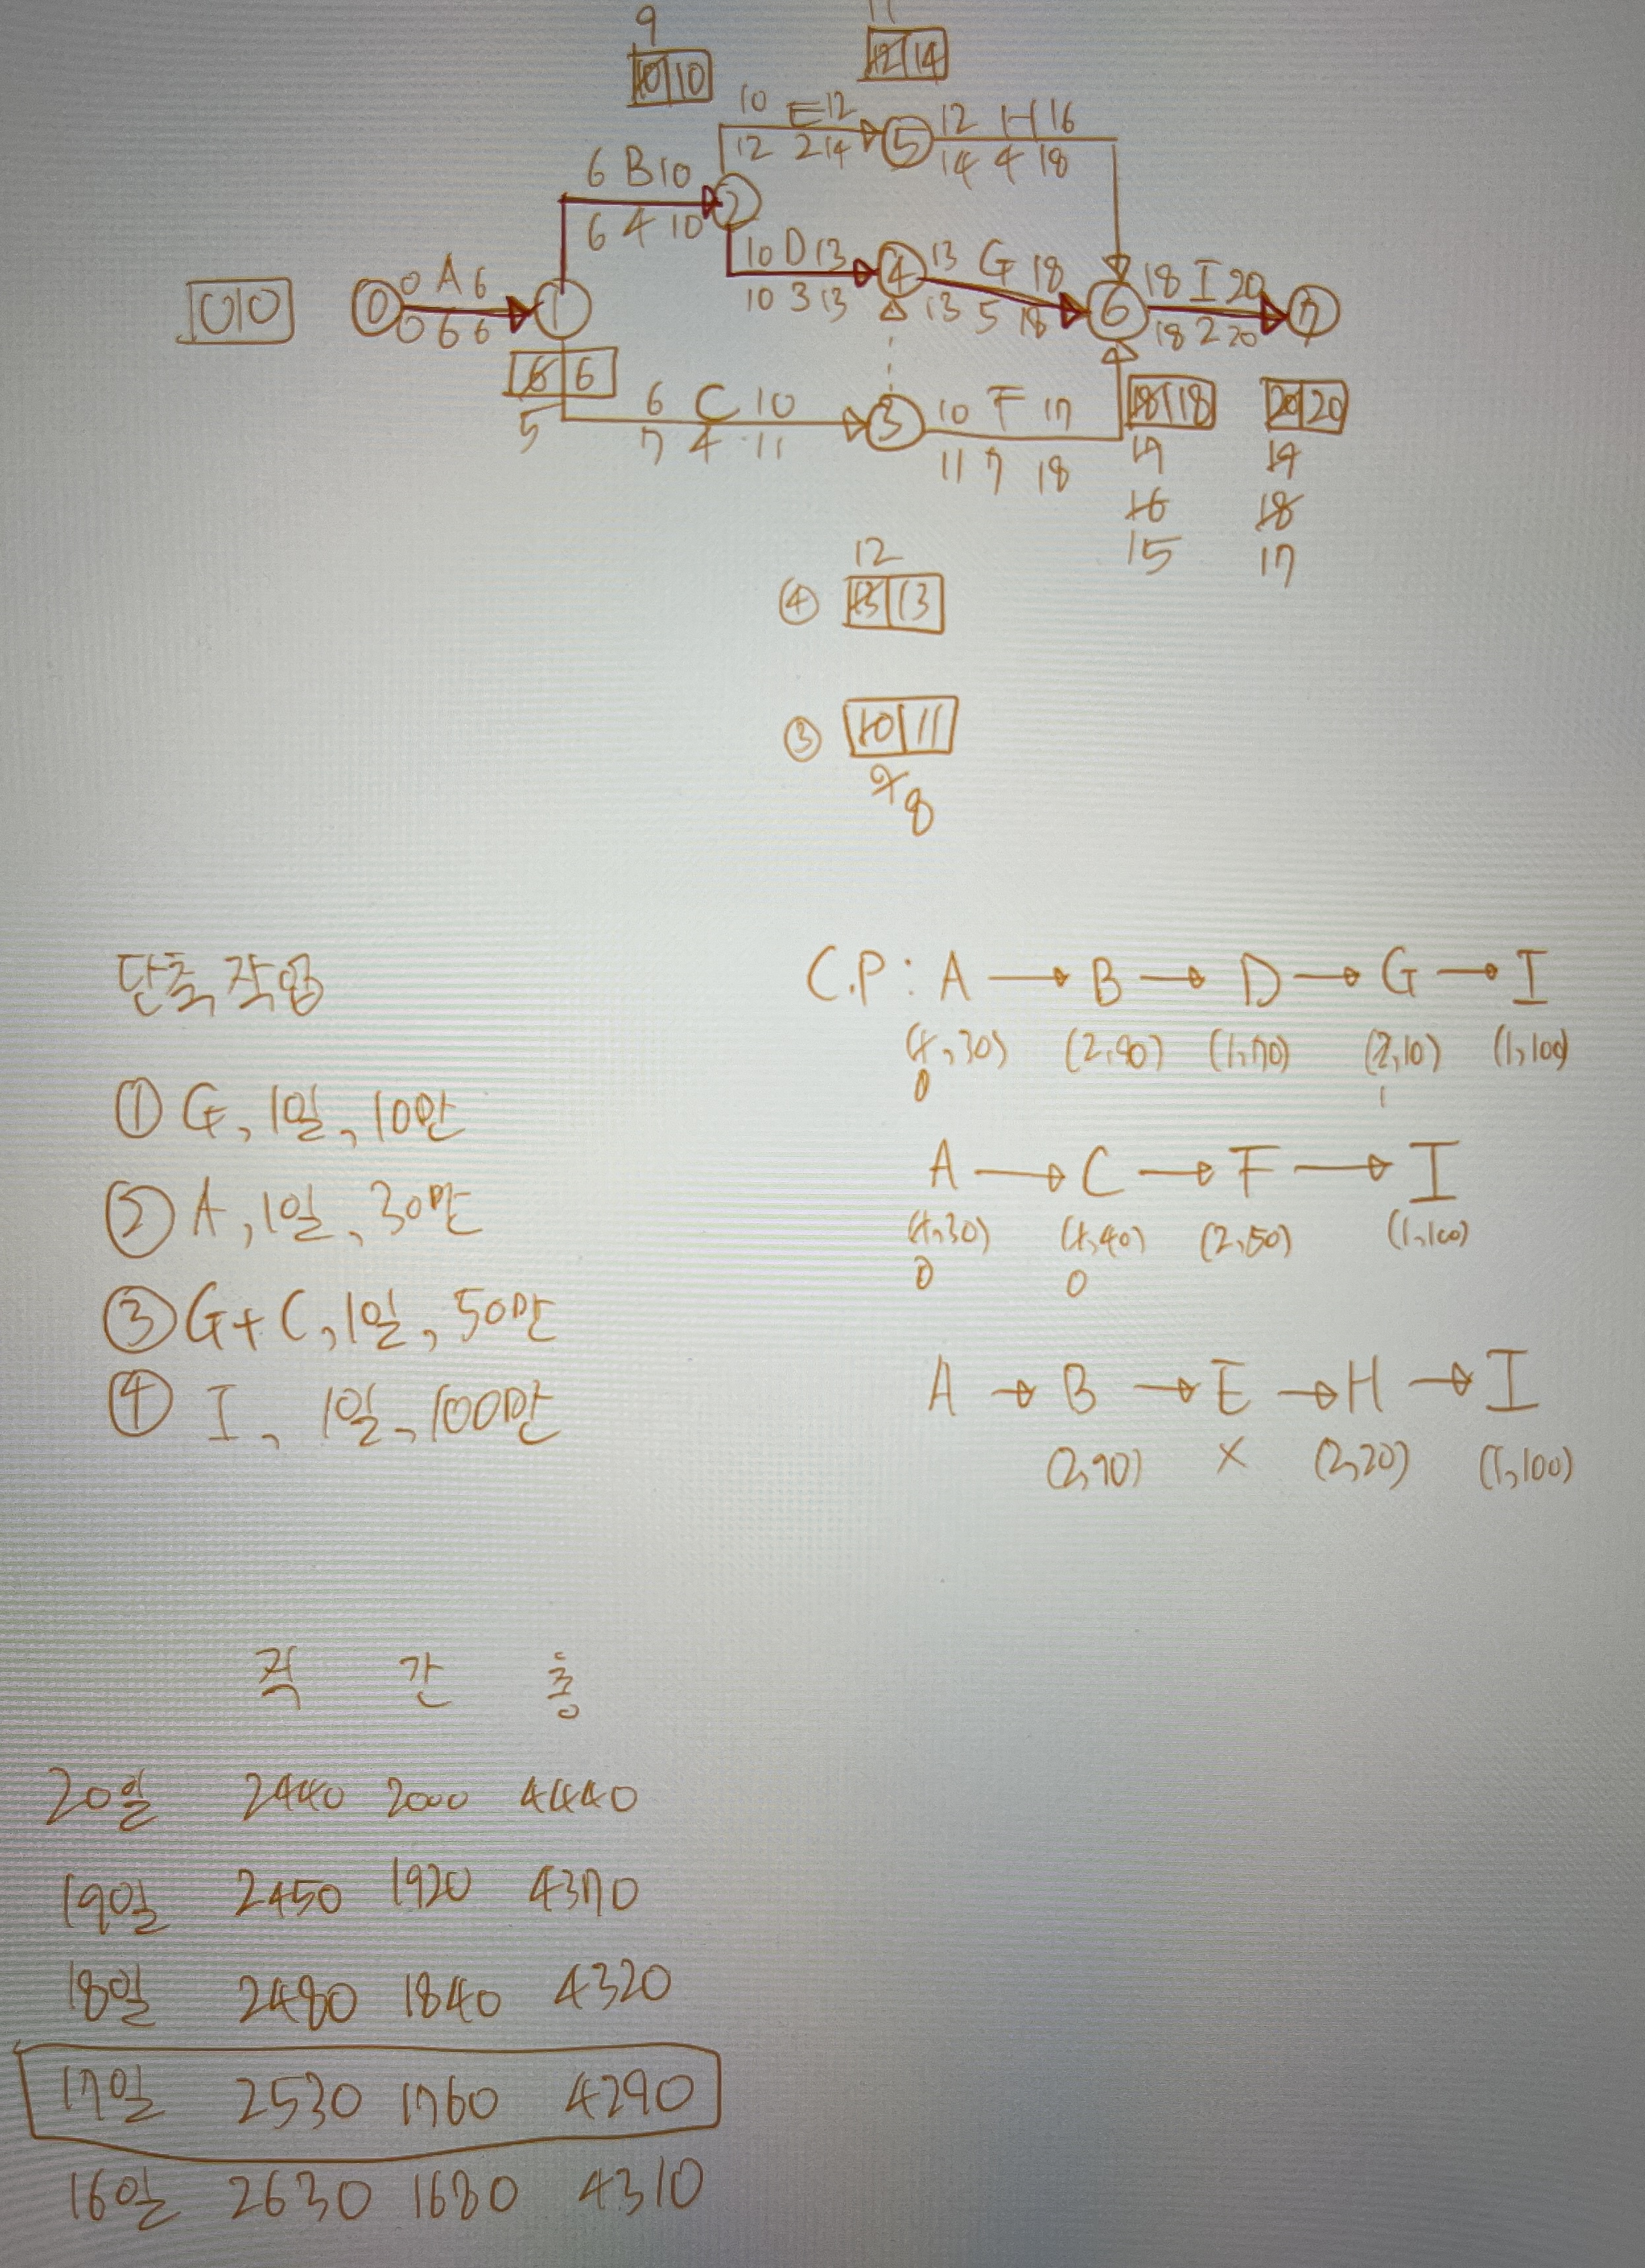 9
11
10 10
12 14
10 E 12
12 2 14
5
12 H 16
14 4 18
6 B 10
6 4 10
2
10 D 13
10 3 13
4
13 G 18
13 5 18
0 0
0
0 A 6
0 6 6
1
6
18 I 20
18 2 20
7
6 6
5
6 C 10
7 4 11
3
10 F 17
11 7 18
18 18
17
16
15
20 20
19
18
17
12
④ 13 13
③ 10 11
9
8
단축작업
① G, 1일, 10만
② A, 1일, 30만
③ G+C, 1일, 50만
④ I, 1일, 100만
C.P: A → B → D → G → I
(1,30) (2,90) (1,70) (2,10) (1,100)
0 1
A → C → F → I
(1,30) (1,40) (2,50) (1,100)
0 0
A → B → E → H → I
(2,90) × (2,20) (1,100)
직 간 총
20일 2440 2000 4440
19일 2450 1920 4370
18일 2480 1840 4320
17일 2530 1760 4290
16일 2630 1680 4310